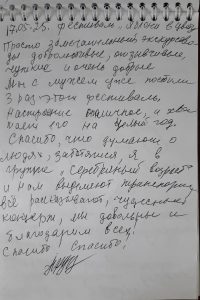 17.05.25. Фестиваль,
Просто замечательный экскурсовод
добросовестные, отзывчивые
чуткие и очень добрые
Мы с мужем уже посетили
3 раз этот фестиваль,
Настроение отличное, и хва
тает его на целый год.
Спасибо, что думают о
людях, заботятся, Я в
группе "Серебряный возраст"
и нам выделяют транспорт,
всё рассказывают, чудесный
концерт, мы довольны и
благодарим всех!
Спасибо Спасибо,